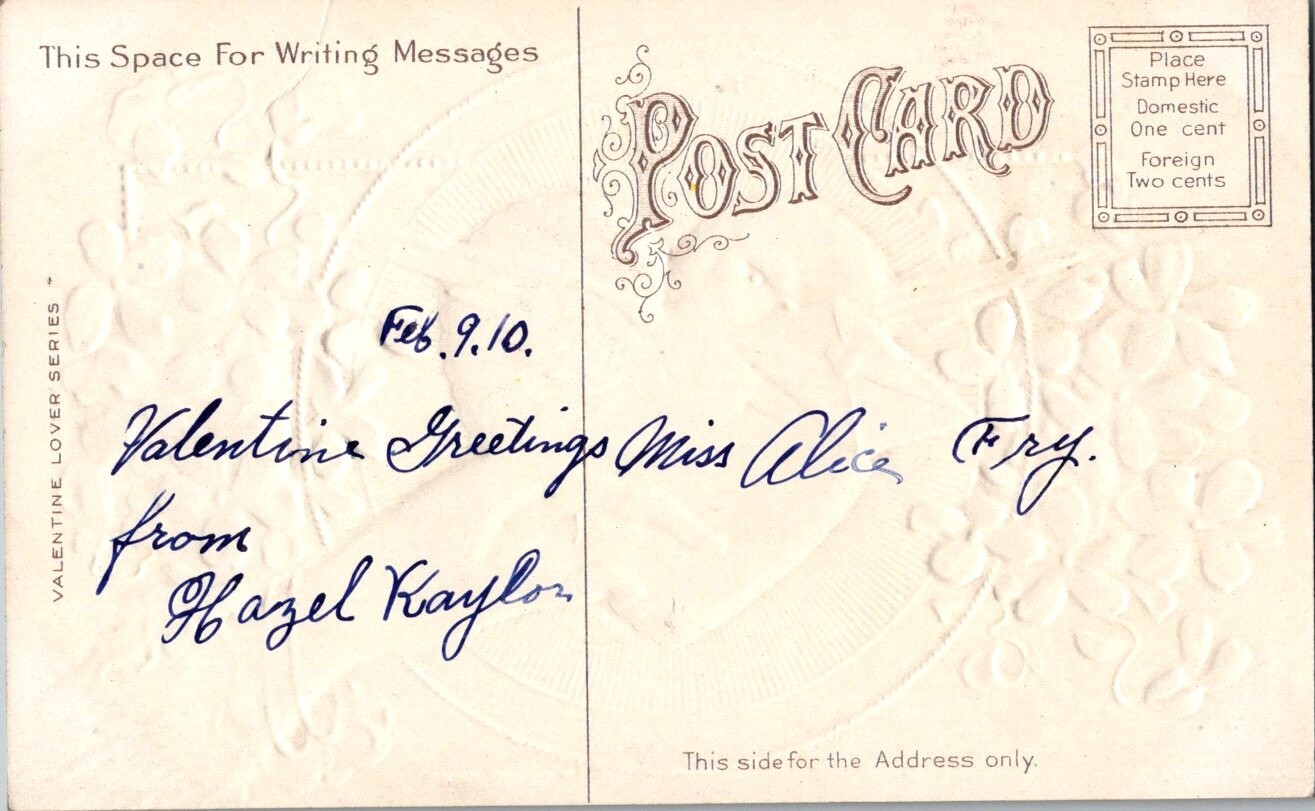 This Space For Writing Messages
POST CARD
Place
Stamp Here
Domestic
One cent
Foreign
Two cents
VALENTINE LOVER SERIES
Feb. 9. 10.
Valentine Greetings
from
Hazel Kaylor
Miss Alice Fry.
This side for the Address only.